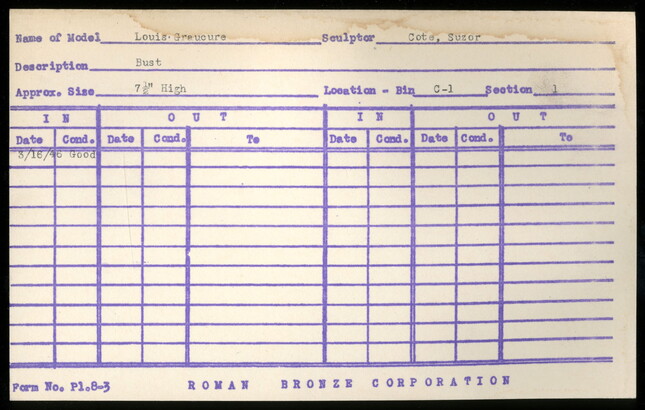 Name of Model Louis Graucure Sculptor Cote, Suzor
Description Bust
Approx. Size 7½" High Location - Bin C-1 Section 1
IN OUT IN OUT
Date Cond. Date Cond. To Date Cond. Date Cond. To
3/18/46 Good
Form No. Pl.8-3 ROMAN BRONZE CORPORATION